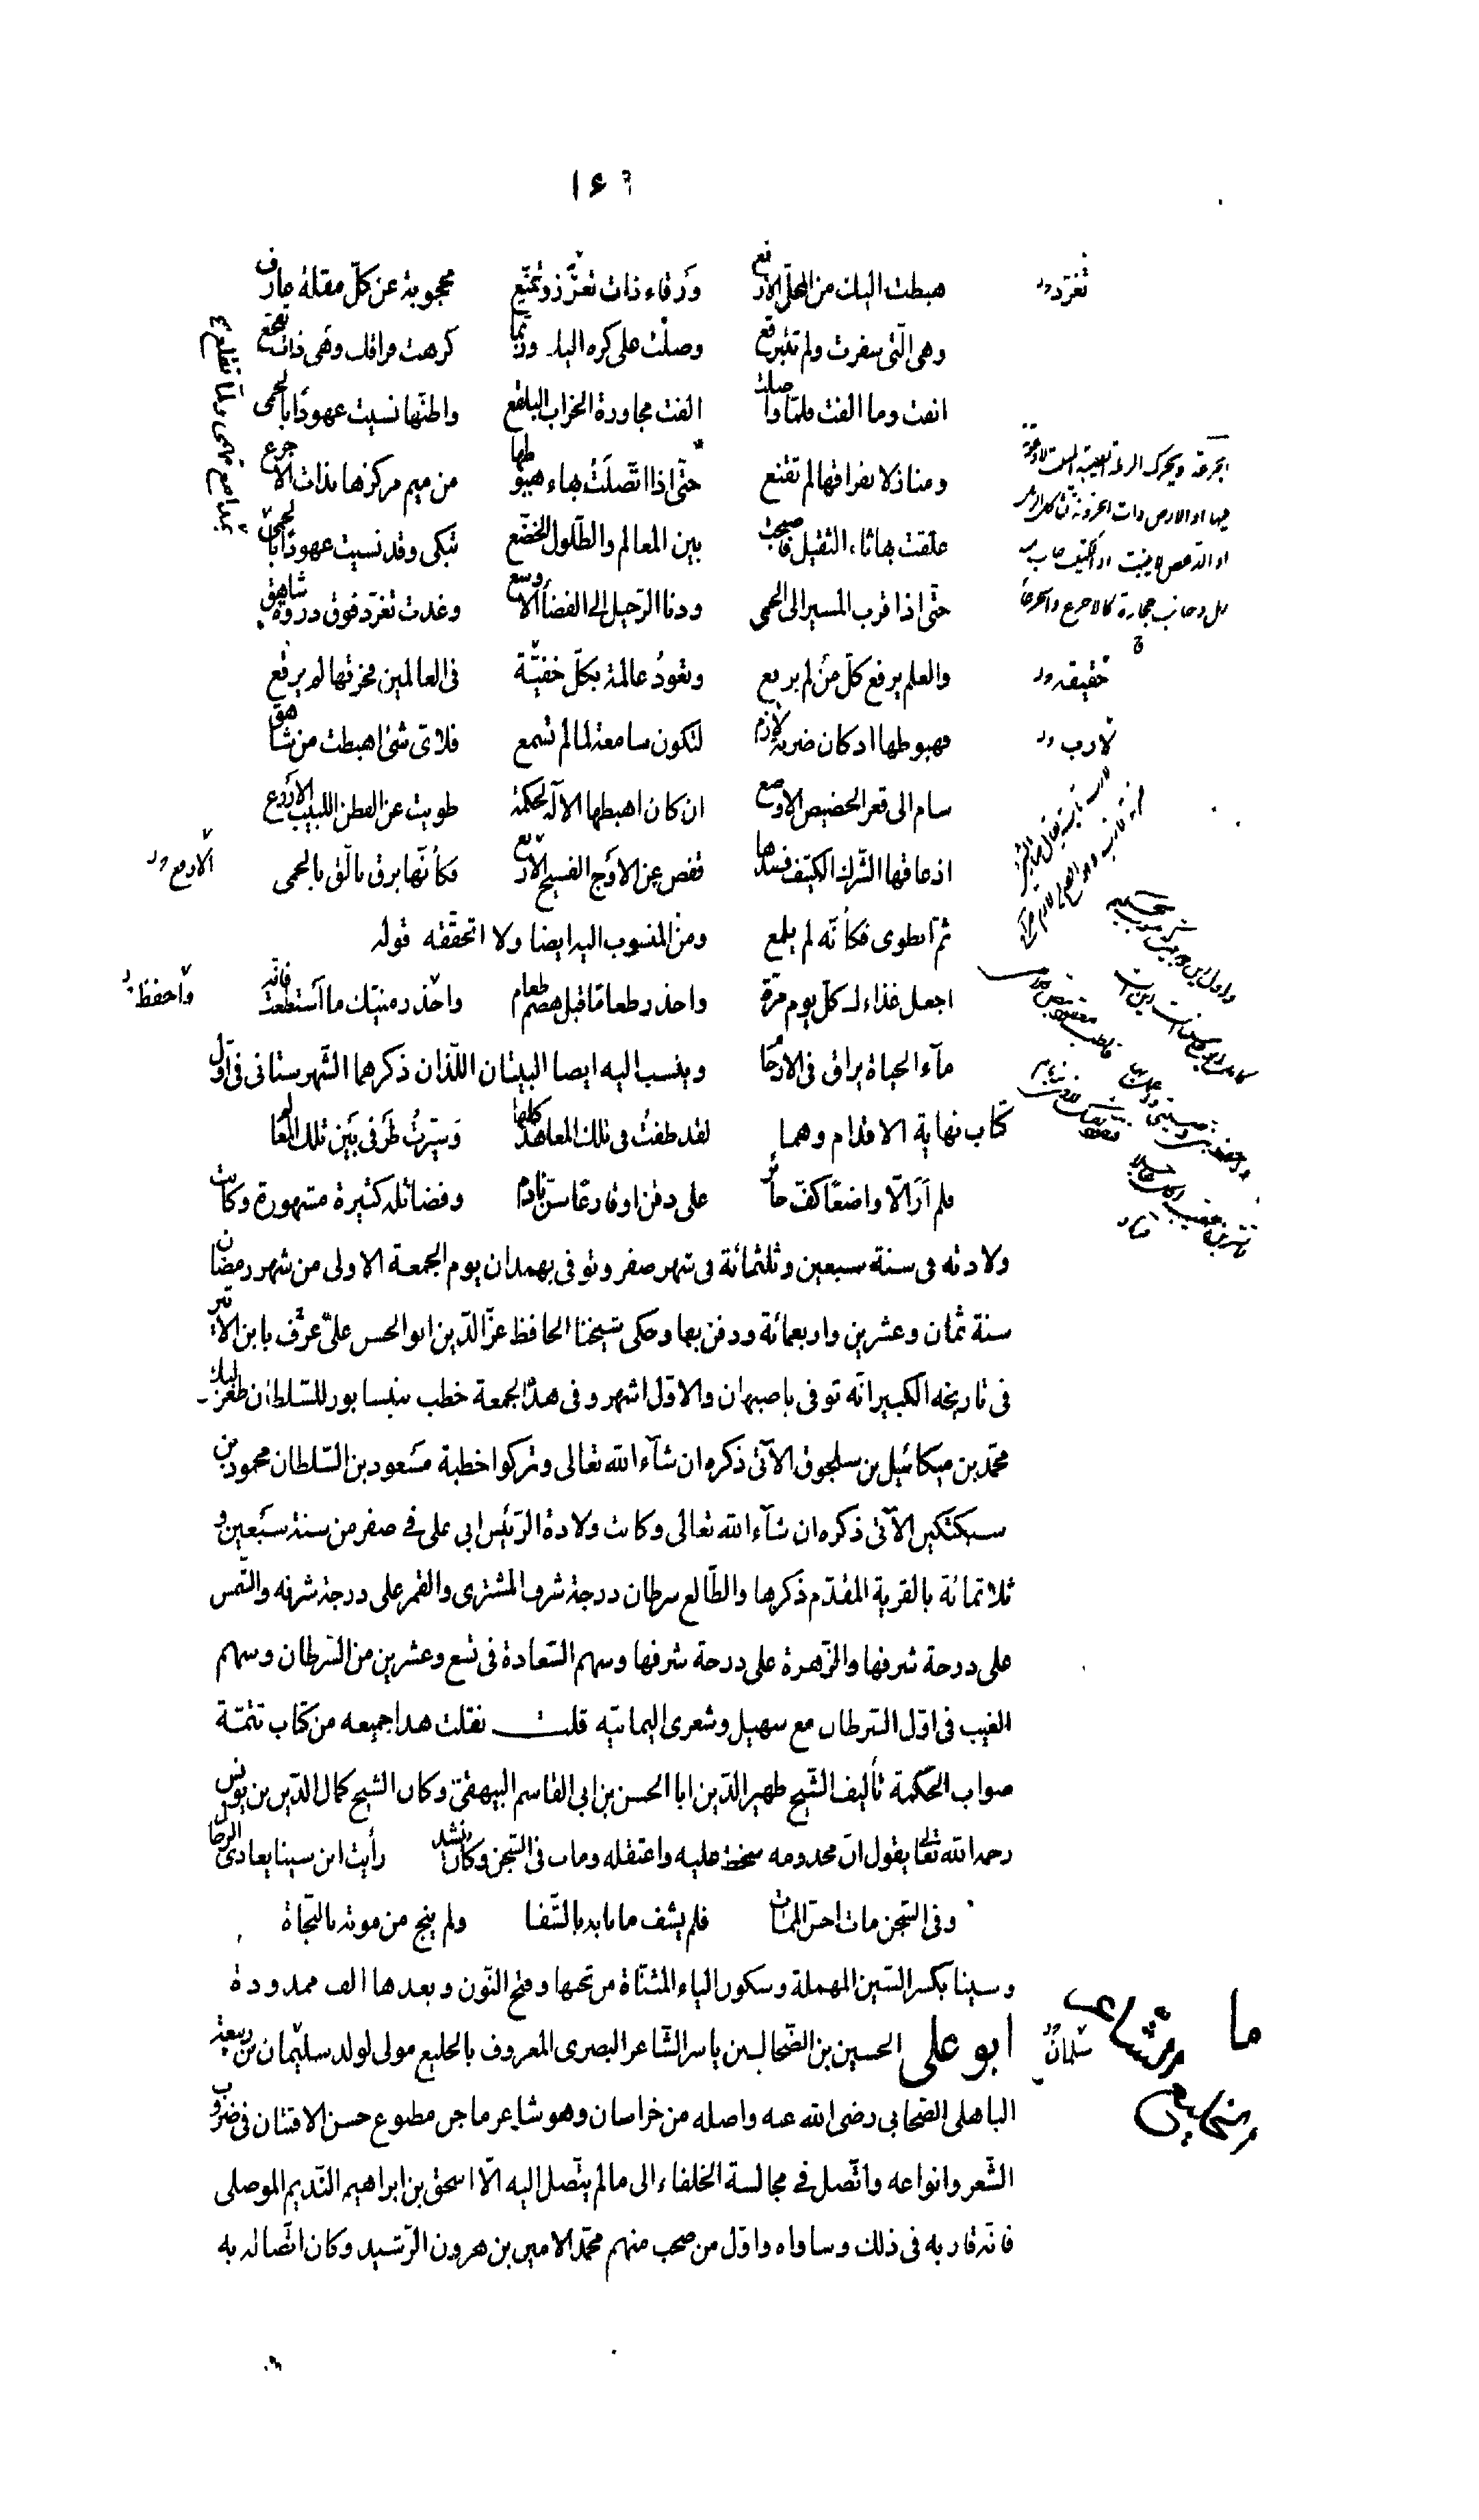 ١٤٦
هبطت اليك من المحلّ الارفع ورقاء ذات تعزّز وتمنّع محجوبة عن كلّ مقلة عارف
وهى الّتى سفرت ولم تتبرقع وصلت على كره اليك وربّما كرهت فراقك وهى ذات تفجع
انفت وما الفت فلمّا واصلت الفت مجاورة الخراب البلقع واظنّها نسيت عهودًا بالحمى
ومنازلا بفراقها لم تقنع حتّى اذا اتّصلت بهاء هبوطها من ميم مركزها بذات الاجرع
علقت بها ثاء الثقيل فاصبحت بين المعالم والطّلول الخضّع تبكى وقد نسيت عهودًا بالحمى
حتّى اذا قرب المسير الى الحمى ودنا الرّحيل الى الفضاء الاوسع وغدت تغرّد فوق ذروة شاهق
والعلم يرفع كلّ من لم يرفع وتعودُ عالمة بكلّ خفيّة فى العالمين فخرقها لم يرقع
فهبوطها اذ كان ضربة لازم لتكون سامعة لما لم تسمع فلاىّ شئ اهبطت من شاهق
سام الى قعر الحضيض الاوضع ان كان اهبطها الاله لحكمة طويت عن الفطن اللبيب الاروع
اذ عاقها الشّرك الكثيف فصدّها قفص عن الاوج الفسيح الاربع فكأنّها برق تألّق بالحمى
ثمّ انطوى فكأنّه لم يلمع ومن المنسوب اليه ايضا ولا اتحقّقه قوله
اجعل غذاءك كلّ يوم مرّة واحذر طعامًا قبل هضم طعام واحذر منيّك ما استطعت فانّه
ماء الحياة يراق فى الارحام وينسب اليه ايضا البيتان اللّذان ذكرهما الشّهرستانى فى اوّل
كتاب نهاية الاقدام وهما لقد طفتُ فى تلك المعاهد كلّها وسيّرتُ طرفى بين تلك المعالم
فلم اَرَ الّا واضعًا كفّ حائر على ذقن او قارعًا سنّ نادم وفضائله كثيرة مشهورة وكانت
ولادته فى سنة سبعين وثلثمائة فى شهر صفر وتوفى بهمدان يوم الجمعة الاولى من شهر رمضان
سنة ثمان وعشرين واربعمائة ودفن بها وحكى شيخنا الحافظ عزّ الدّين ابو الحسن علىّ عرف بابن الاثير
فى تاريخه الكبير انّه توفى باصبهان والاوّل اشهر وفى هذا الجمعة خطب بنيسابور للسّلطان طغرلبك
محمّد بن ميكائيل بن سلجوق الآتى ذكره ان شآء الله تعالى وتركوا خطبة مسعود بن السّلطان محمود بن
سبكتكين الآتى ذكره ان شآء الله تعالى وكانت ولادة الرّئيس ابى على فى صفر من سنة سبعين و
ثلاثمائة بالقرية المقدّم ذكرها والطّالع سرطان درجة شرف المشترى والقمر على درجة شرفه والشّمس
على درجة شرفها والزّهرة على درجة شرفها وسهم السّعادة فى تسع وعشرين من السّرطان وسهم
الغيب فى اوّل السّرطان مع سهيل وشعرى اليمانيّه قلت نقلت هذا جميعه من كتاب تتمّة
صواب الحكمة تأليف الشّيخ ظهير الدّين ابا الحسن بن ابى القاسم البيهقىّ وكان الشيخ كمال الدّين بن يونس
رحمه الله تعالى يقول انّ مخدومه سخط عليه واعتقله ومات فى السّجن وكان ينشد رأيت ابن سينا يعادى الرجال
وفى السّجن مات اخسّ الممات فلم يشف ما نابه بالشّفا ولم ينج من موته بالنّجاة
وسينا بكسر السّين المهملة وسكون الياء المثنّاة من تحتها وفتح النّون وبعدها الف ممدودة
ابو على الحسين بن الضّحاك بن ياسر الشّاعر البصرى المعروف بالخليع مولى لولد سليمان بن ربيعة
الباهلى الصّحابى رضى الله عنه واصله من خراسان وهو شاعر ماجن مطبوع حسن الافتنان فى ضروب
الشّعر وانواعه واتّصل فى مجالسة الخلفاء الى ما لم يتّصل اليه الّا اسحق بن ابراهيم النّديم الموصلى
فانّه قاربه فى ذلك وساواه واوّل من صحب منهم محمّد الامين بن هرون الرّشيد وكان اتّصاله به
تغرّد
خفيفه
لازب
الاروع
واحفظ
سلمان